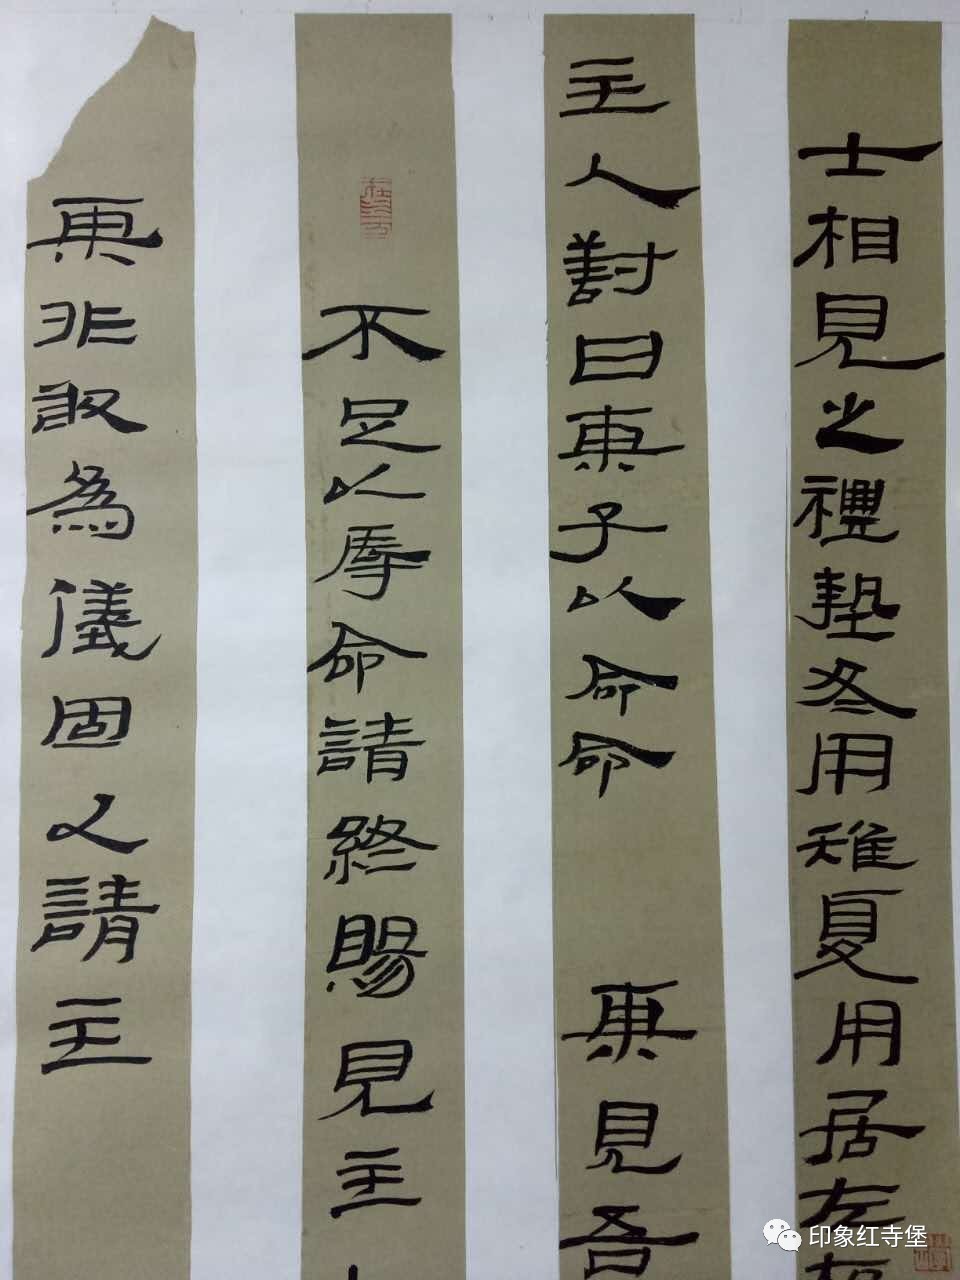 士相見之禮墊冬用雉夏用居左
主人對曰某子以命命某見吾
不足以辱命請終賜見主
某非敢為儀固以請主
印象红寺堡